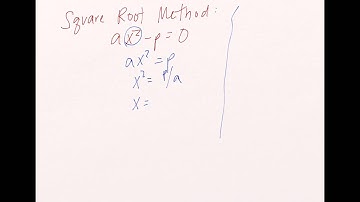 Square Root Method:
ax²-p=0
ax²=p
x²=p/a
x=